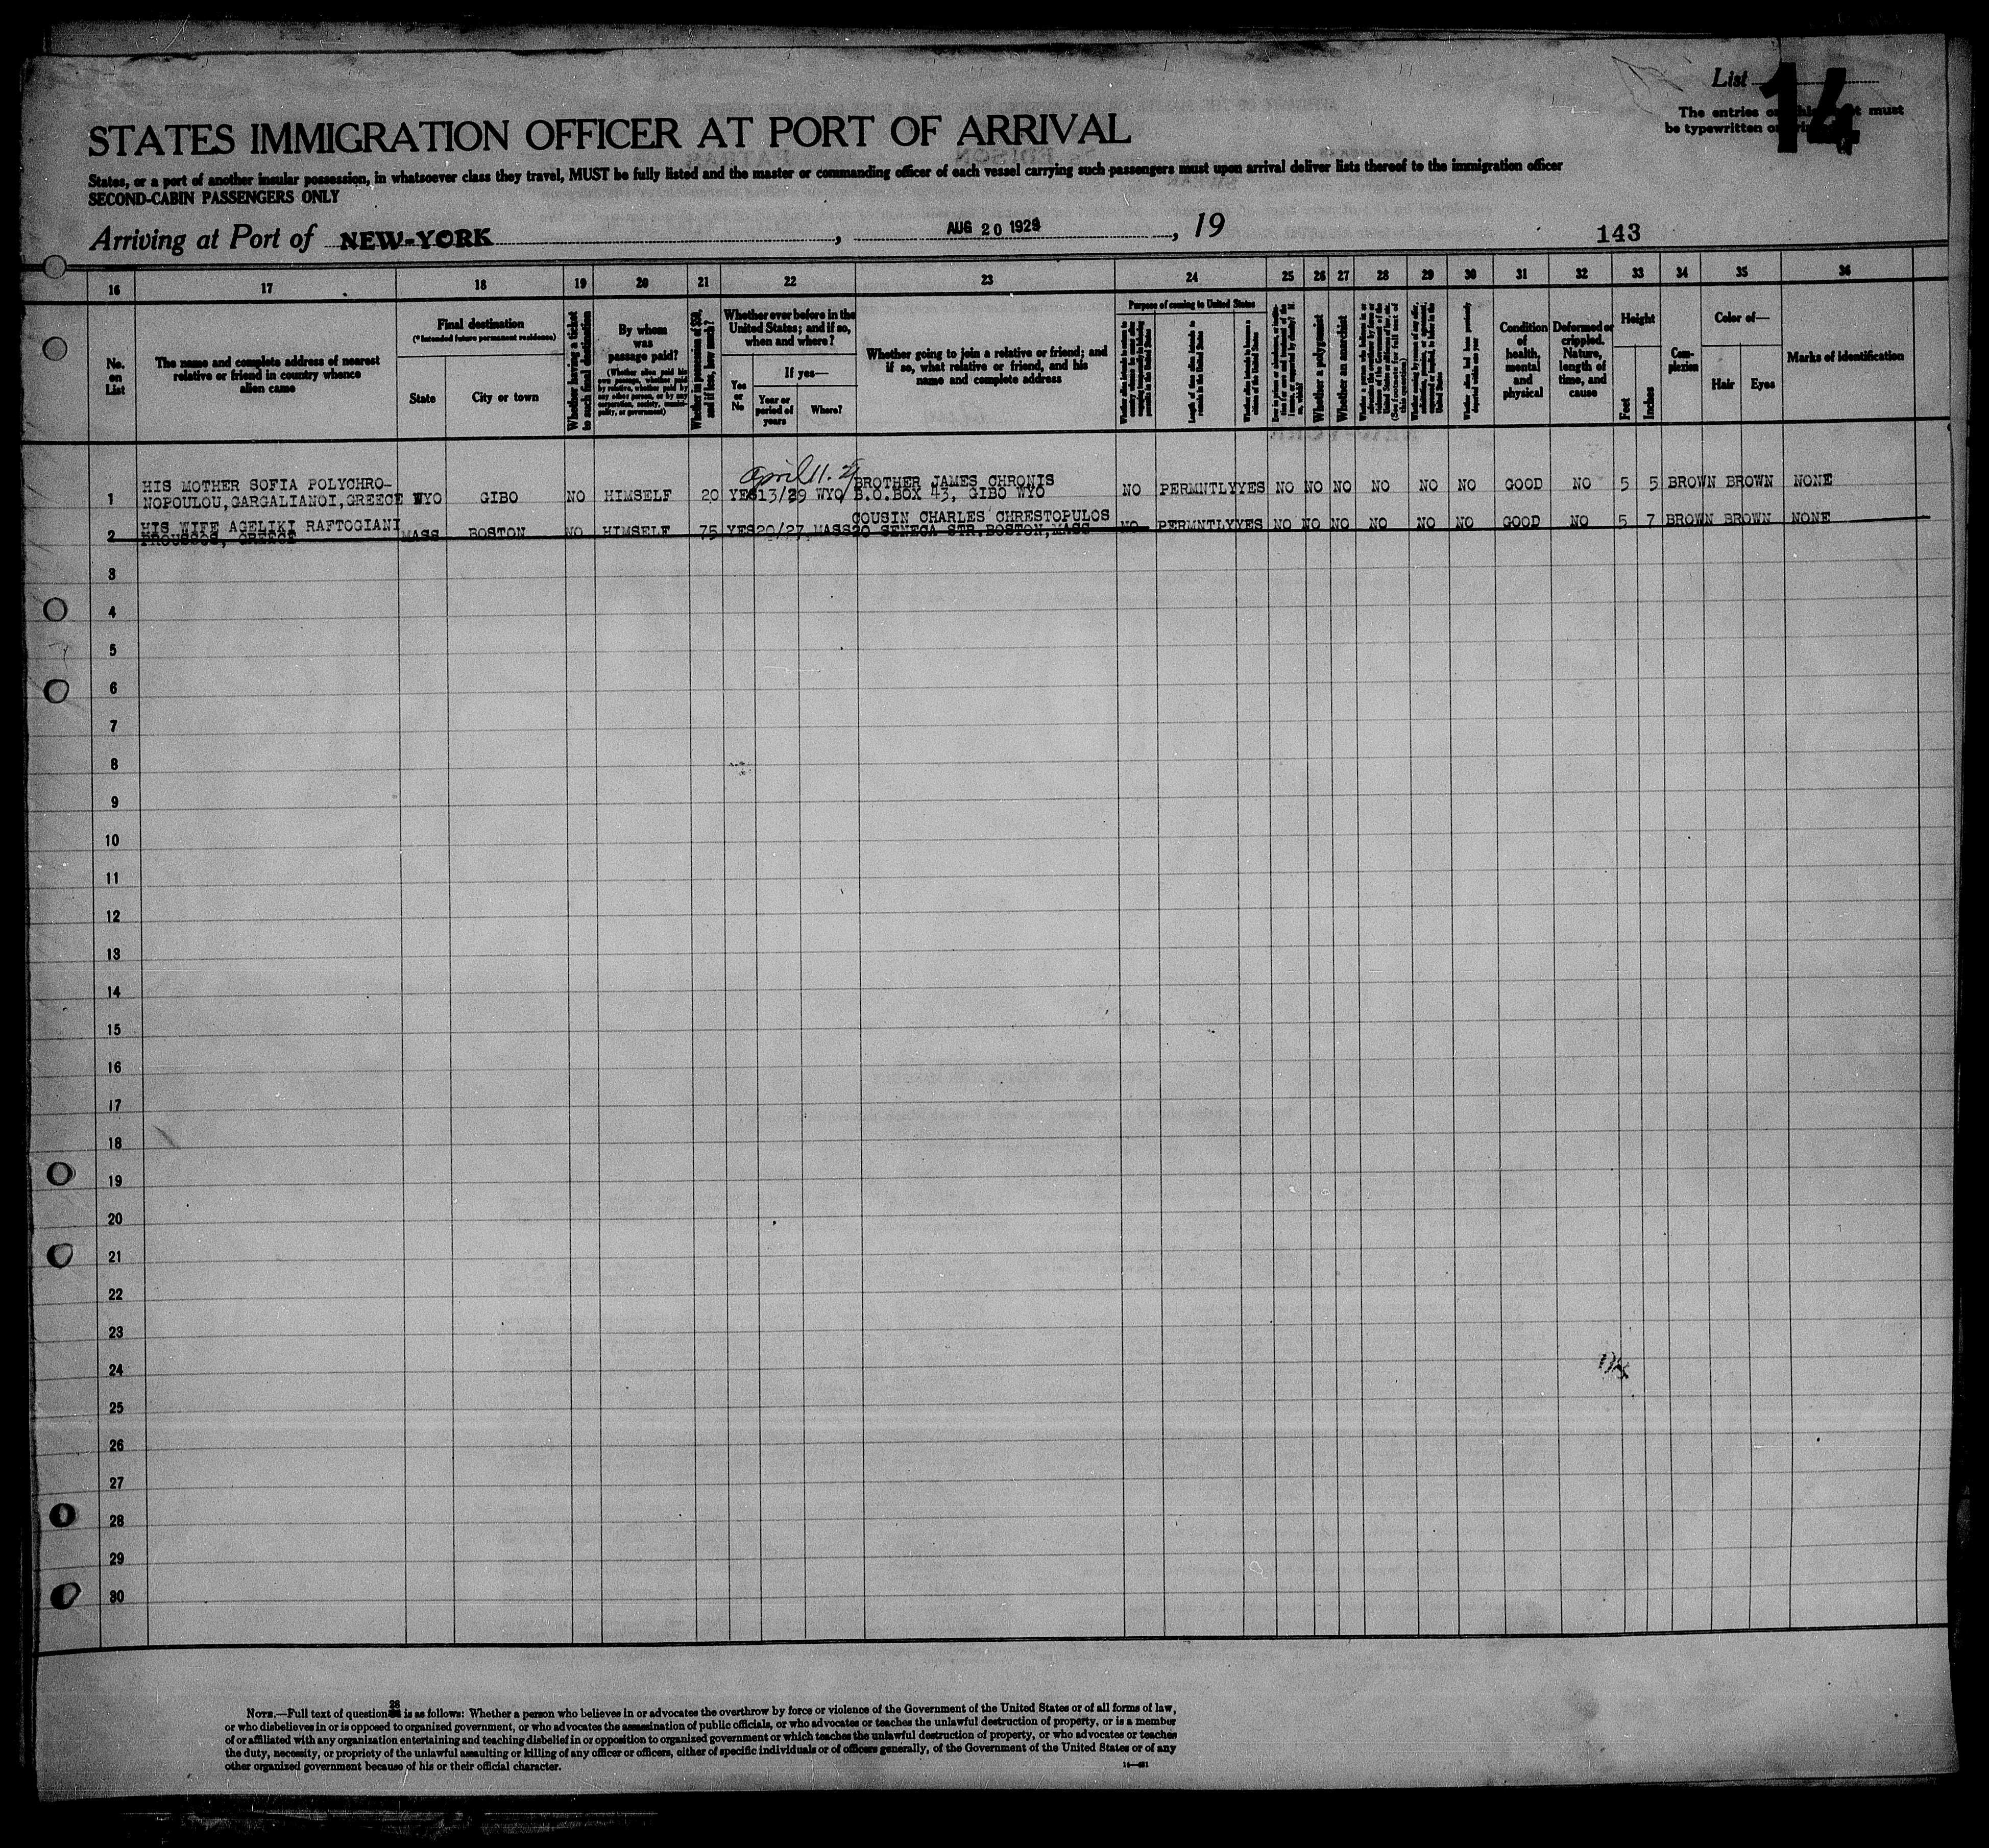 List 14
The entries on this sheet must
be typewritten or printed
STATES IMMIGRATION OFFICER AT PORT OF ARRIVAL
States, or a port of another insular possession, in whatsoever class they travel, MUST be fully listed and the master or commanding officer of each vessel carrying such passengers must upon arrival deliver lists thereof to the immigration officer
SECOND-CABIN PASSENGERS ONLY
Arriving at Port of NEW-YORK, AUG 20 1929, 19
143
16 17 18 19 20 21 22 23 24 25 26 27 28 29 30 31 32 33 34 35 36
No.
on
List
The name and complete address of nearest
relative or friend in country whence
alien came
Final destination
(*Intended future permanent residence)
State
City or town
Whether having a ticket
to such final destination
By whom
was
passage paid?
(Whether alien paid his
own passage, whether paid
by relative, whether paid by
any other person, or by any
corporation, society, munici-
pality, or government)
Whether in possession of $50,
and if less, how much?
Whether ever before in the
United States; and if so,
when and where?
Yes
or
No
If yes—
Year or
period of
years
Where?
Whether going to join a relative or friend; and
if so, what relative or friend, and his
name and complete address
Purpose of coming to United States
Length of time alien intends to
remain in the United States
Whether alien intends to become a
citizen of the United States
Whether a polygamist
Whether an anarchist
Whether alien had been previously
deported within one year
Condition
of
health,
mental
and
physical
Deformed or
crippled.
Nature,
length of
time, and
cause
Height
Feet
Inches
Com-
plexion
Color of—
Hair
Eyes
Marks of identification
April 11. 29
1 HIS MOTHER SOFIA POLYCHRO-
NOPOULOU,GARGALIANOI,GREECE WYO GIBO NO HIMSELF 20 YES 13/29 WYO BROTHER JAMES CHRONIS
B.O.BOX 43, GIBO WYO NO PERMNTLY YES NO NO NO NO NO NO GOOD NO 5 5 BROWN BROWN NONE
2 HIS WIFE AGELIKI RAFTOGIANI
PROUSSOS, GREECE MASS BOSTON NO HIMSELF 75 YES 20/27 MASS COUSIN CHARLES CHRESTOPULOS
20 SENECA STR.BOSTON,MASS NO PERMNTLY YES NO NO NO NO NO NO GOOD NO 5 7 BROWN BROWN NONE
3
4
5
6
7
8
9
10
11
12
13
14
15
16
17
18
19
20
21
22
23
24
25
26
27
28
29
30
28
NOTE.—Full text of question is as follows: Whether a person who believes in or advocates the overthrow by force or violence of the Government of the United States or of all forms of law,
or who disbelieves in or is opposed to organized government, or who advocates the assassination of public officials, or who advocates or teaches the unlawful destruction of property, or is a member
of or affiliated with any organization entertaining and teaching disbelief in or opposition to organized government or which teaches the unlawful destruction of property, or who advocates or teaches
the duty, necessity, or propriety of the unlawful assaulting or killing of any officer or officers, either of specific individuals or of officers generally, of the Government of the United States or of any
other organized government because of his or their official character.